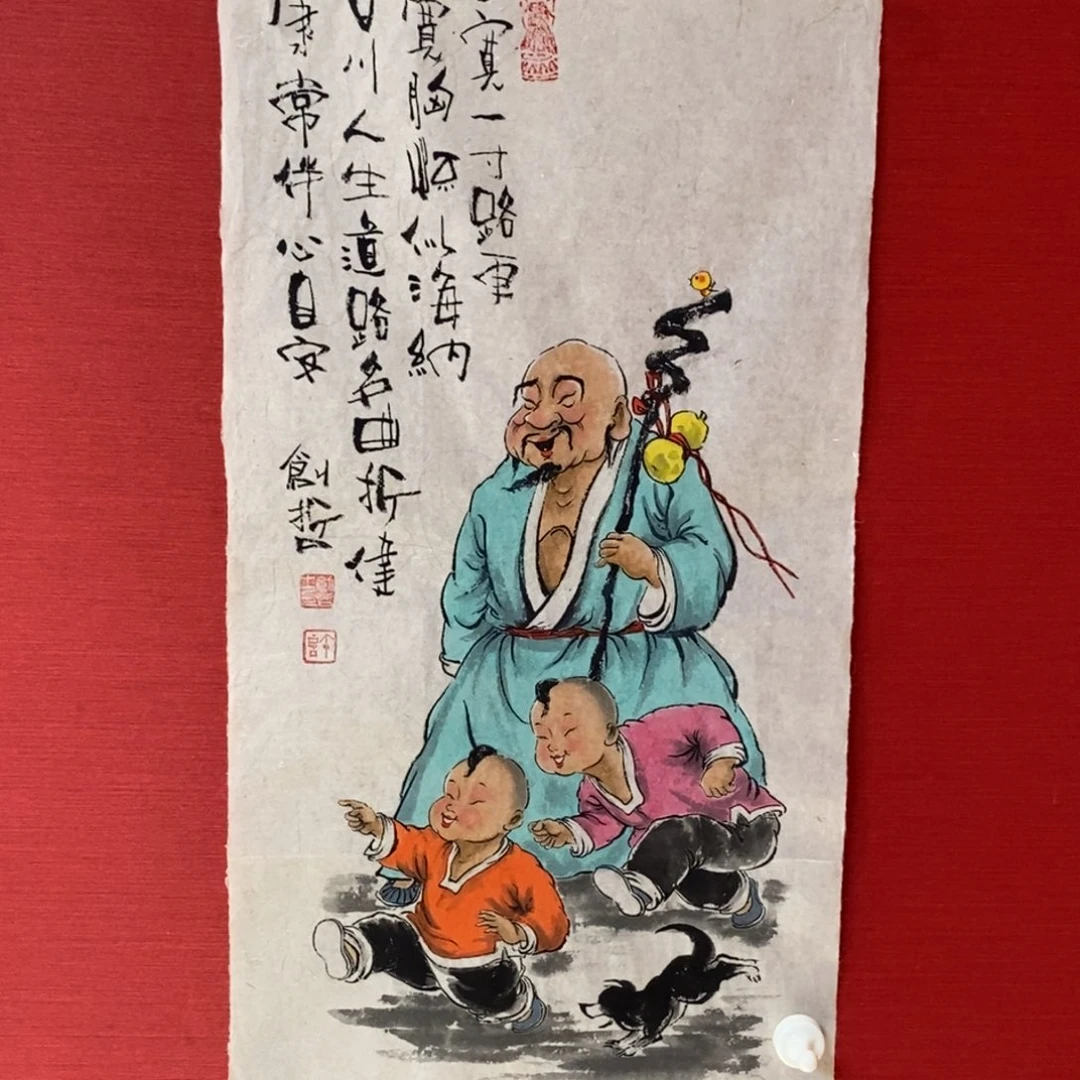 寬一寸路更
寬胸怀似海納
百川人生道路多曲折健
康常伴心自安
創哲